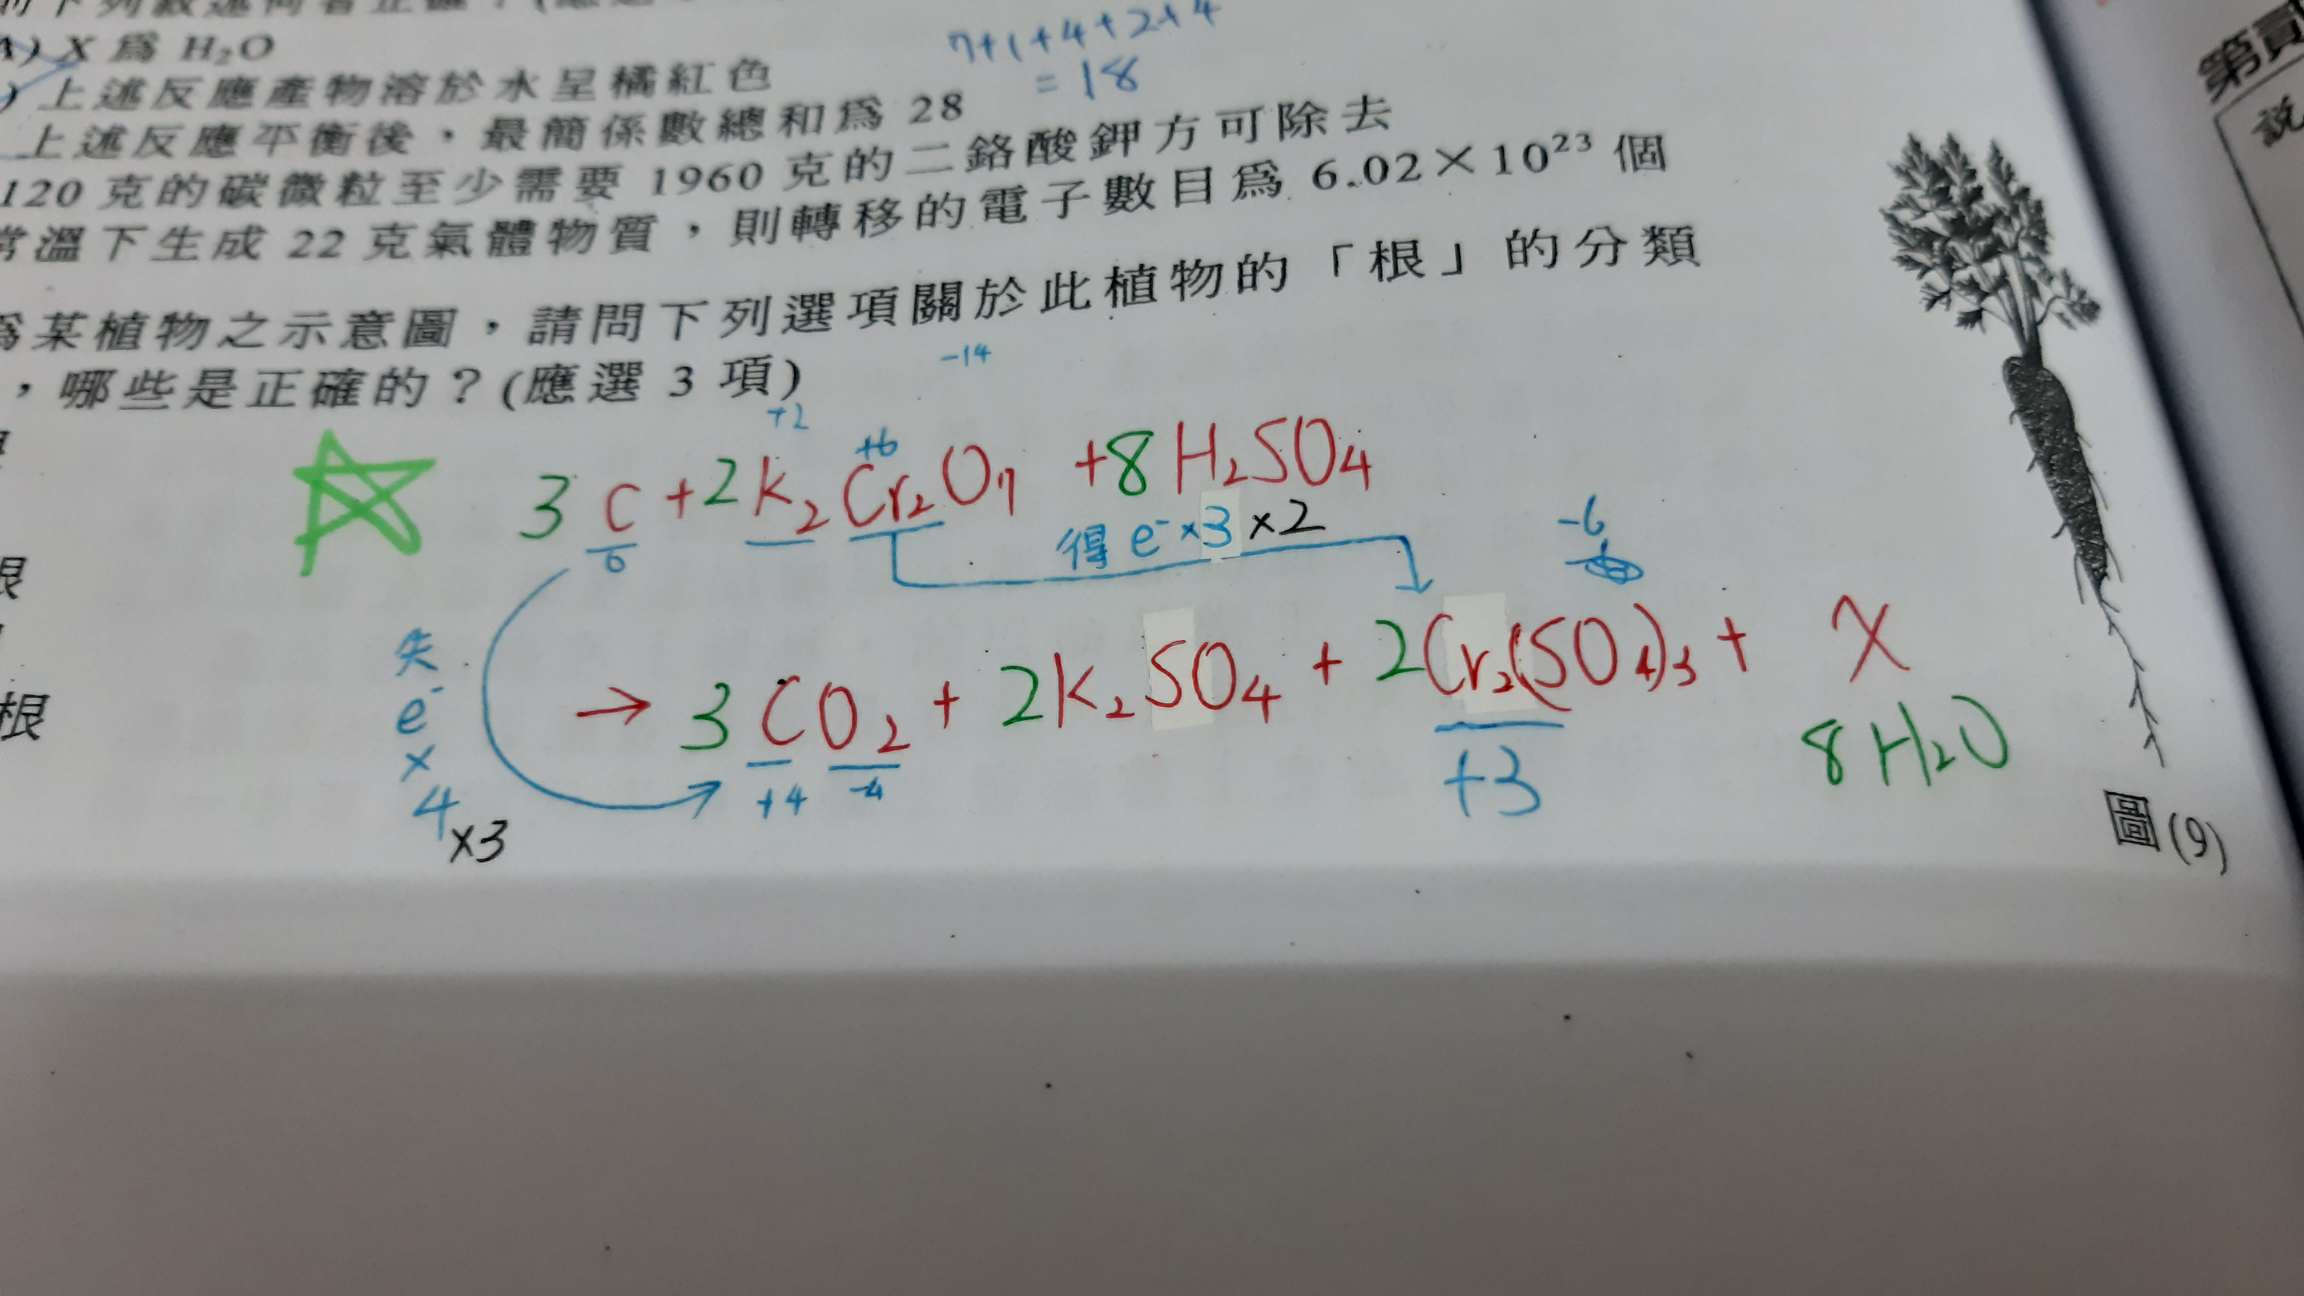 下列敘述何者正確？(應選
A) X 為 H₂O
7+1+4+2+4
=18
) 上述反應產物溶於水呈橘紅色
上述反應平衡後，最簡係數總和為 28
120 克的碳微粒至少需要 1960 克的二鉻酸鉀方可除去
常溫下生成 22 克氣體物質，則轉移的電子數目為 6.02×10²³ 個
為某植物之示意圖，請問下列選項關於此植物的「根」的分類
，哪些是正確的？(應選 3 項)
-14
+2
+6
3C + 2K₂Cr₂O₇ + 8H₂SO₄
0
得 e⁻×3×2
-6
失 e⁻ × 4 ×3
→ 3CO₂ + 2K₂SO₄ + 2Cr₂(SO₄)₃ + X
+4 -4
+3
8H₂O
根
根
圖(9)
第貳
說